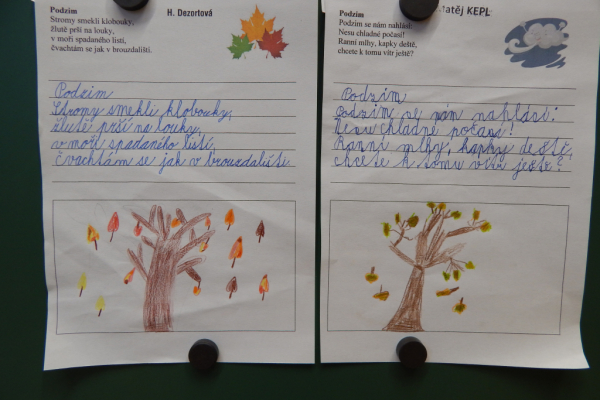 Podzim
H. Dezortová
Stromy smekli klobouky,
žlutě prší na louky,
v moři spadaného listí,
čvachtám se jak v brouzdališti.
Podzim
Stromy smekli klobouky,
žlutě prší na louky,
v moři spadaného listí,
čvachtám se jak v brouzdališti.
Podzim
atěj KEPL
Podzim se nám nahlásí:
Nesu chladné počasí!
Ranní mlhy, kapky deště,
chcete k tomu vítr ještě?
Podzim
Podzim se nám nahlásí:
Nesu chladné počasí!
Ranní mlhy, kapky deště,
chcete k tomu vítr ještě?